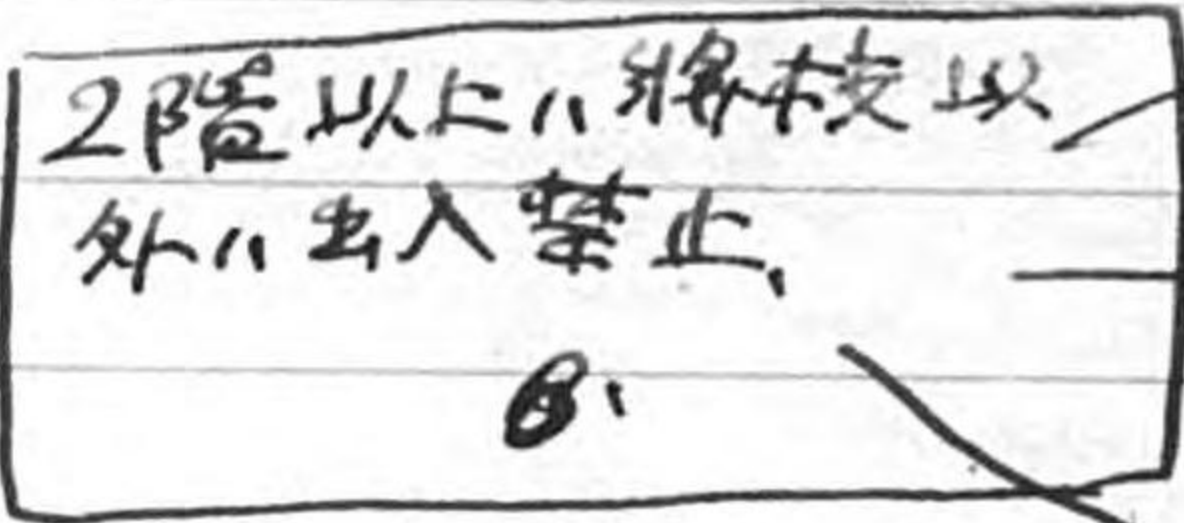 2階以上ハ将校以
外ハ出入禁止、